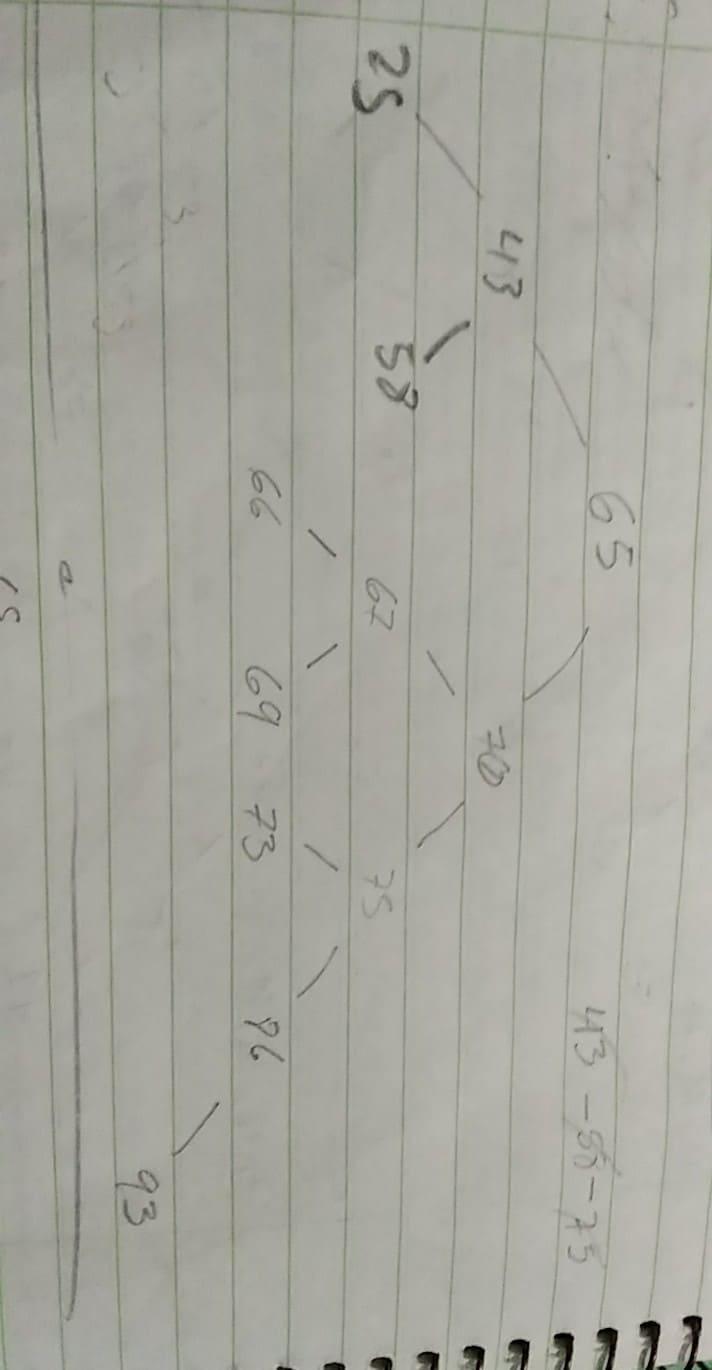 65
43 - 58 - 75
43 70
25 58 67 75
66 69 73 86
93